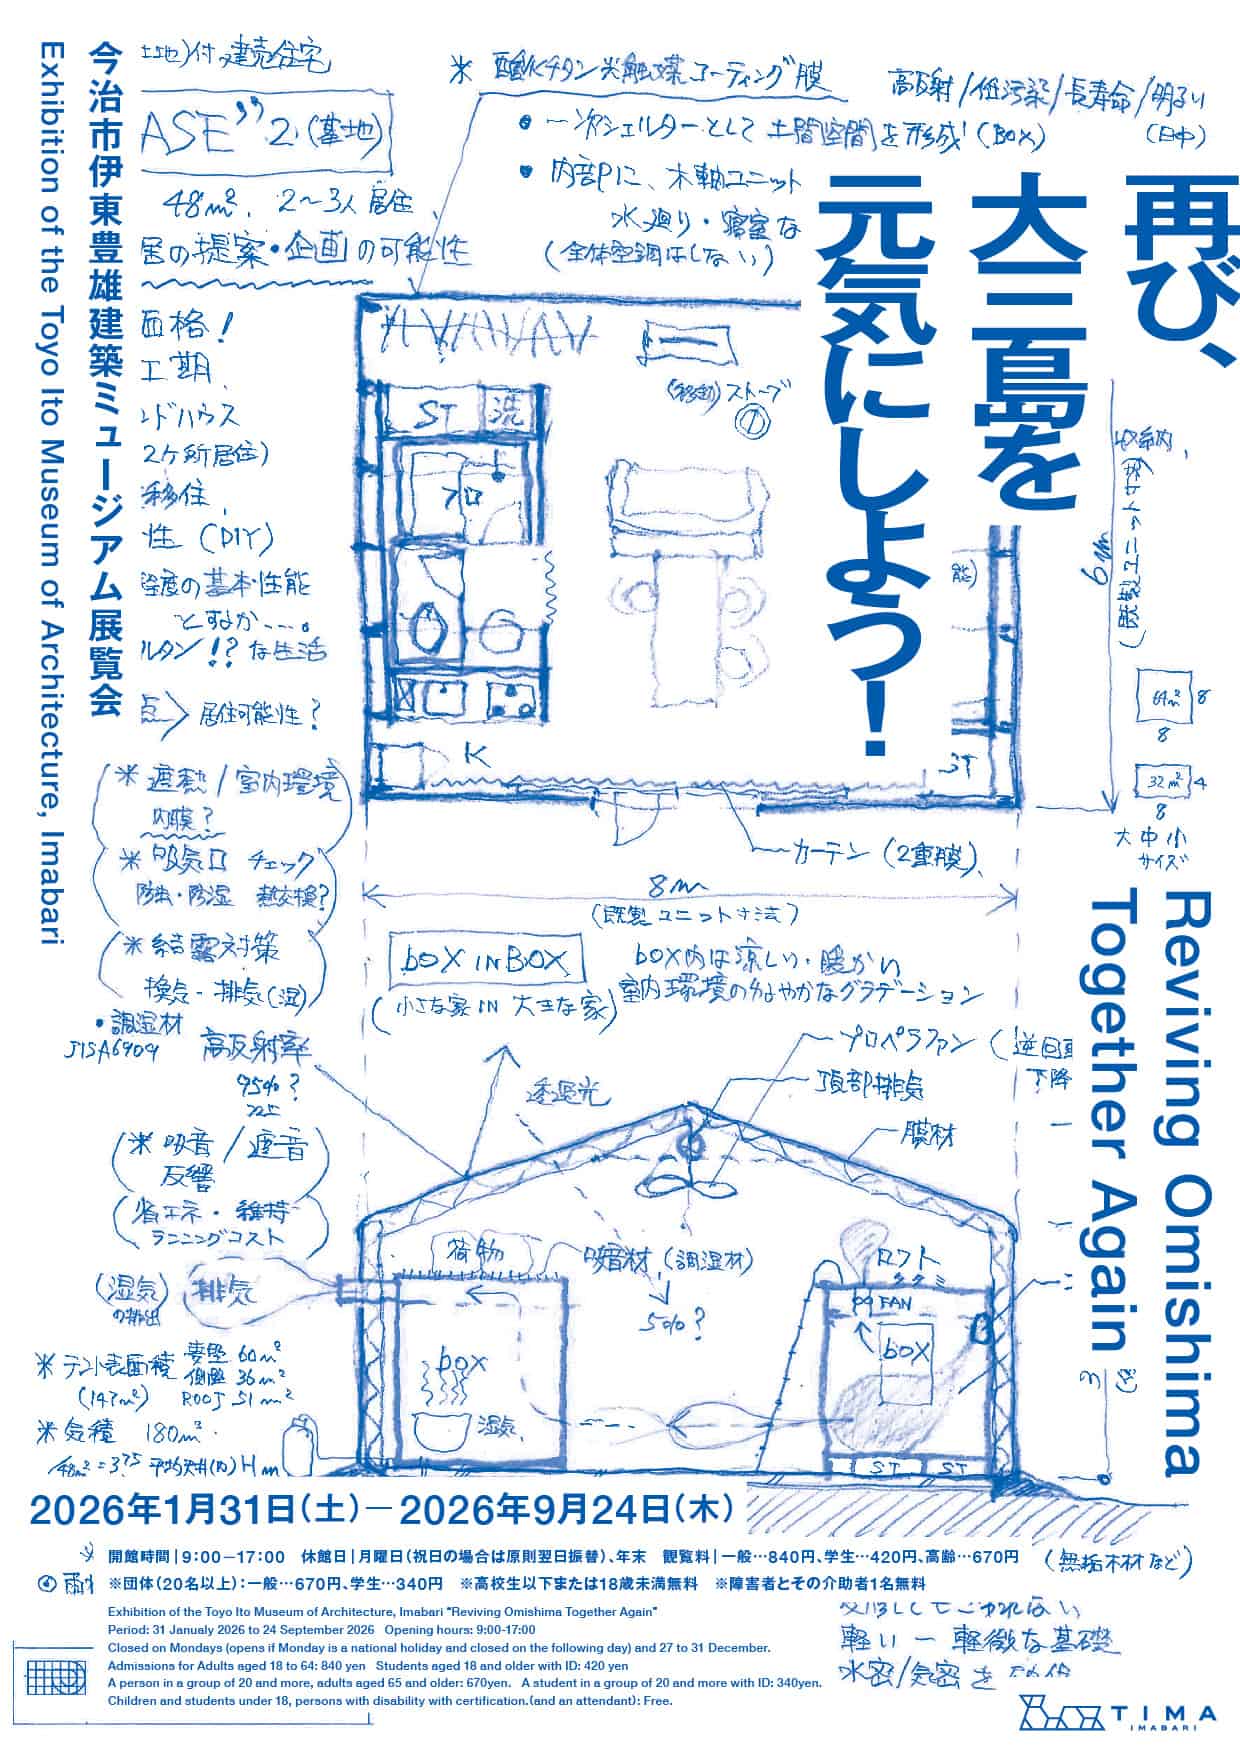 再び、
大三島を
元気にしよう！
Reviving Omishima
Together Again
今治市伊東豊雄建築ミュージアム展覧会
Exhibition of the Toyo Ito Museum of Architecture, Imabari
土地)付 建売住宅
2(基地)
48m² 2〜3人居住
居の提案・企画の可能性
価格！
工期
ンドハウス
2ケ所居住)
移住
性 (DIY)
の基本性能
とするか---。
ルタン!? な生活
点 居住可能性?
※ 酸化チタン光触媒コーティング膜
高反射/低汚染/長寿命/明るい
(日中)
• 一次シェルターとして 土間空間を形成 (BOX)
• 内部に、木軸ユニット
水廻り・寝室な
(全体空調はしない)
(移動)ストーブ
ST 洗
フロ
K
ST
収納
6m
(既製ユニット寸法)
64m² 8
8
32m² 4
8
大中小
サイズ
カーテン (2重膜)
8m
(既製ユニット寸法)
※ 遮熱/室内環境
内膜?
※ 吸気口 チェック
防虫・防湿 熱交換?
※ 結露対策
換気・排気(湿)
• 調湿材
JISA6909
高反射率
95%?
box IN BOX
(小さな家 IN 大きな家)
box内は涼しい・暖かい
室内環境のゆるやかなグラデーション
透過光
プロペラファン
下降
頂部排気
膜材
※ 吸音/遮音
反響
省エネ・維持
ランニングコスト
(湿気)
の排出
排気
荷物
吸音材 (調湿材)
50%?
ロフト
タタミ
FAN
box
box
湿気
ST ST
※ テント表面積 妻壁 60m²
(147m²) 側壁 36m²
ROOF 51m²
※ 気積 180m²
2026年1月31日(土)－2026年9月24日(木)
開館時間|9:00－17:00 休館日|月曜日(祝日の場合は原則翌日振替)、年末 観覧料|一般…840円、学生…420円、高齢…670円
※団体(20名以上)：一般…670円、学生…340円 ※高校生以下または18歳未満無料 ※障害者とその介助者1名無料
(無垢木材など)
軽い － 軽微な基礎
水密/気密を
Exhibition of the Toyo Ito Museum of Architecture, Imabari "Reviving Omishima Together Again"
Period: 31 Janualy 2026 to 24 September 2026 Opening hours: 9:00-17:00
Closed on Mondays (opens if Monday is a national holiday and closed on the following day) and 27 to 31 December.
Admissions for Adults aged 18 to 64: 840 yen Students aged 18 and older with ID: 420 yen
A person in a group of 20 and more, adults aged 65 and older: 670yen. A student in a group of 20 and more with ID: 340yen.
Children and students under 18, persons with disability with certification.(and an attendant): Free.
TIMA
IMABARI